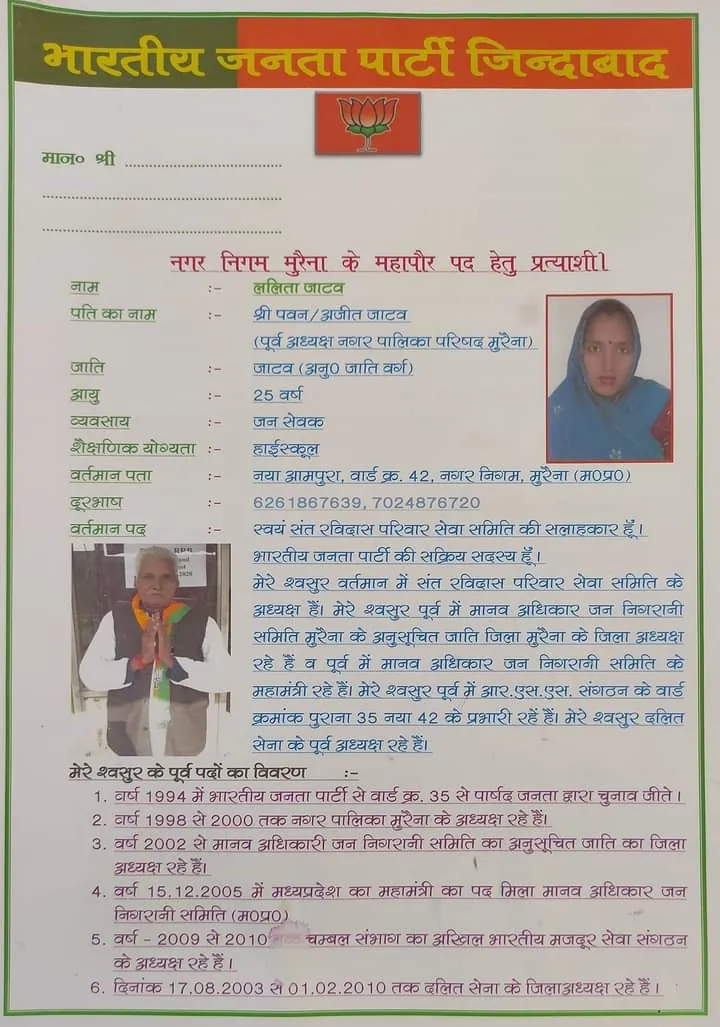 भारतीय जनता पार्टी जिन्दाबाद
मान० श्री ..............................
नगर निगम मुरैना के महापौर पद हेतु प्रत्याशी।
नाम :- ललिता जाटव
पति का नाम :- श्री पवन/अजीत जाटव
(पूर्व अध्यक्ष नगर पालिका परिषद मुरैना)
जाति :- जाटव (अनु0 जाति वर्ग)
आयु :- 25 वर्ष
व्यवसाय :- जन सेवक
शैक्षणिक योग्यता :- हाईस्कूल
वर्तमान पता :- नया आमपुरा, वार्ड क्र. 42, नगर निगम, मुरैना (म0प्र0)
दूरभाष :- 6261867639, 7024876720
वर्तमान पद :- स्वयं संत रविदास परिवार सेवा समिति की सलाहकार हूँ।
भारतीय जनता पार्टी की सक्रिय सदस्य हूँ।
मेरे श्वसुर वर्तमान में संत रविदास परिवार सेवा समिति के
अध्यक्ष हैं। मेरे श्वसुर पूर्व में मानव अधिकार जन निगरानी
समिति मुरैना के अनुसूचित जाति जिला मुरैना के जिला अध्यक्ष
रहे हैं व पूर्व में मानव अधिकार जन निगरानी समिति के
महामंत्री रहे हैं। मेरे श्वसुर पूर्व में आर.एस.एस. संगठन के वार्ड
क्रमांक पुराना 35 नया 42 के प्रभारी रहें हैं। मेरे श्वसुर दलित
सेना के पूर्व अध्यक्ष रहे हैं।
मेरे श्वसुर के पूर्व पदों का विवरण :-
1. वर्ष 1994 में भारतीय जनता पार्टी से वार्ड क्र. 35 से पार्षद जनता द्वारा चुनाव जीते।
2. वर्ष 1998 से 2000 तक नगर पालिका मुरैना के अध्यक्ष रहे हैं।
3. वर्ष 2002 से मानव अधिकारी जन निगरानी समिति का अनुसूचित जाति का जिला
अध्यक्ष रहे हैं।
4. वर्ष 15.12.2005 में मध्यप्रदेश का महामंत्री का पद मिला मानव अधिकार जन
निगरानी समिति (म0प्र0)
5. वर्ष - 2009 से 2010 चम्बल संभाग का अखिल भारतीय मजदूर सेवा संगठन
के अध्यक्ष रहे हैं।
6. दिनांक 17.08.2003 से 01.02.2010 तक दलित सेना के जिलाअध्यक्ष रहे हैं।